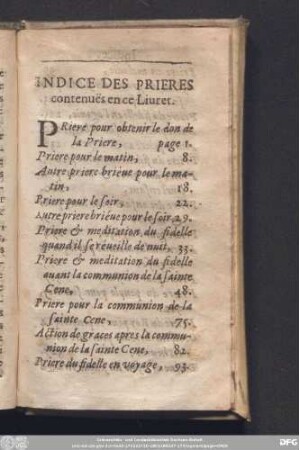 INDICE DES PRIERES
contenuës en ce Liuret.
PRiere pour obtenir le don de
la Priere, page 1.
Priere pour le matin, 8.
Autre priere briéue pour le ma-
tin, 18.
Priere pour le soir, 22.
Autre priere briéue pour le soir, 29.
Priere & meditation du fidelle
quand il se réueille de nuit, 33.
Priere & meditation du fidelle
auant la communion de la sainte
Cene, 48.
Priere pour la communion de la
sainte Cene, 75.
Action de graces apres la commu-
nion de la sainte Cene, 82.
Priere du fidelle en voyage, 93.
DFG